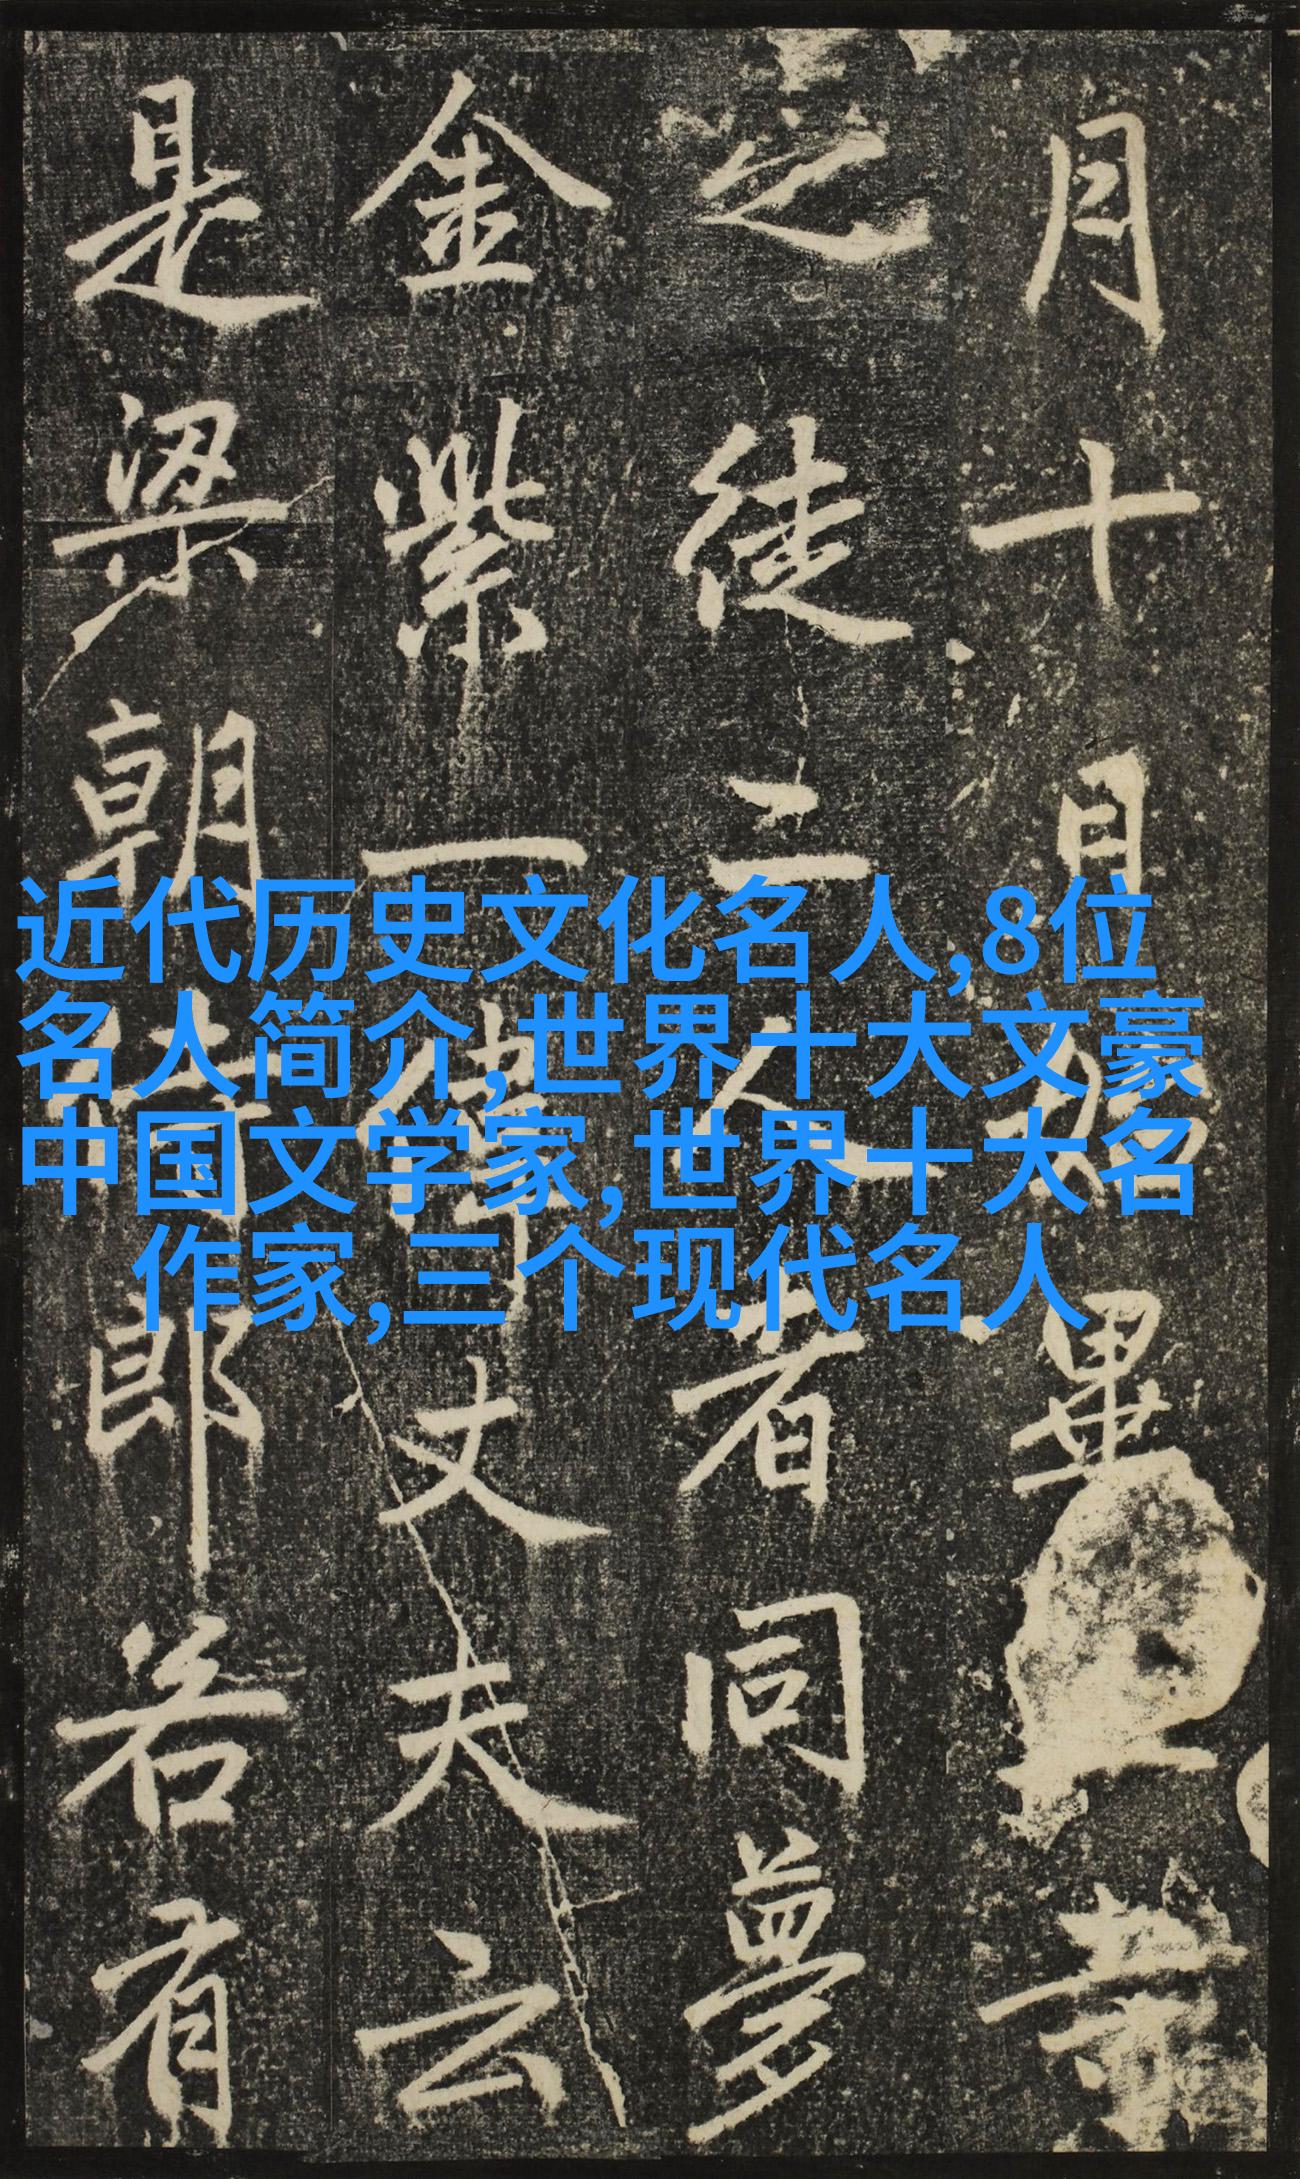 月十日畢
之徒二人者同夢
金紫一偉丈夫云
是梁朝侍郎若有
近代历史文化名人,8位
名人简介,世界十大文豪
中国文学家,世界十大名
作家,三个现代名人